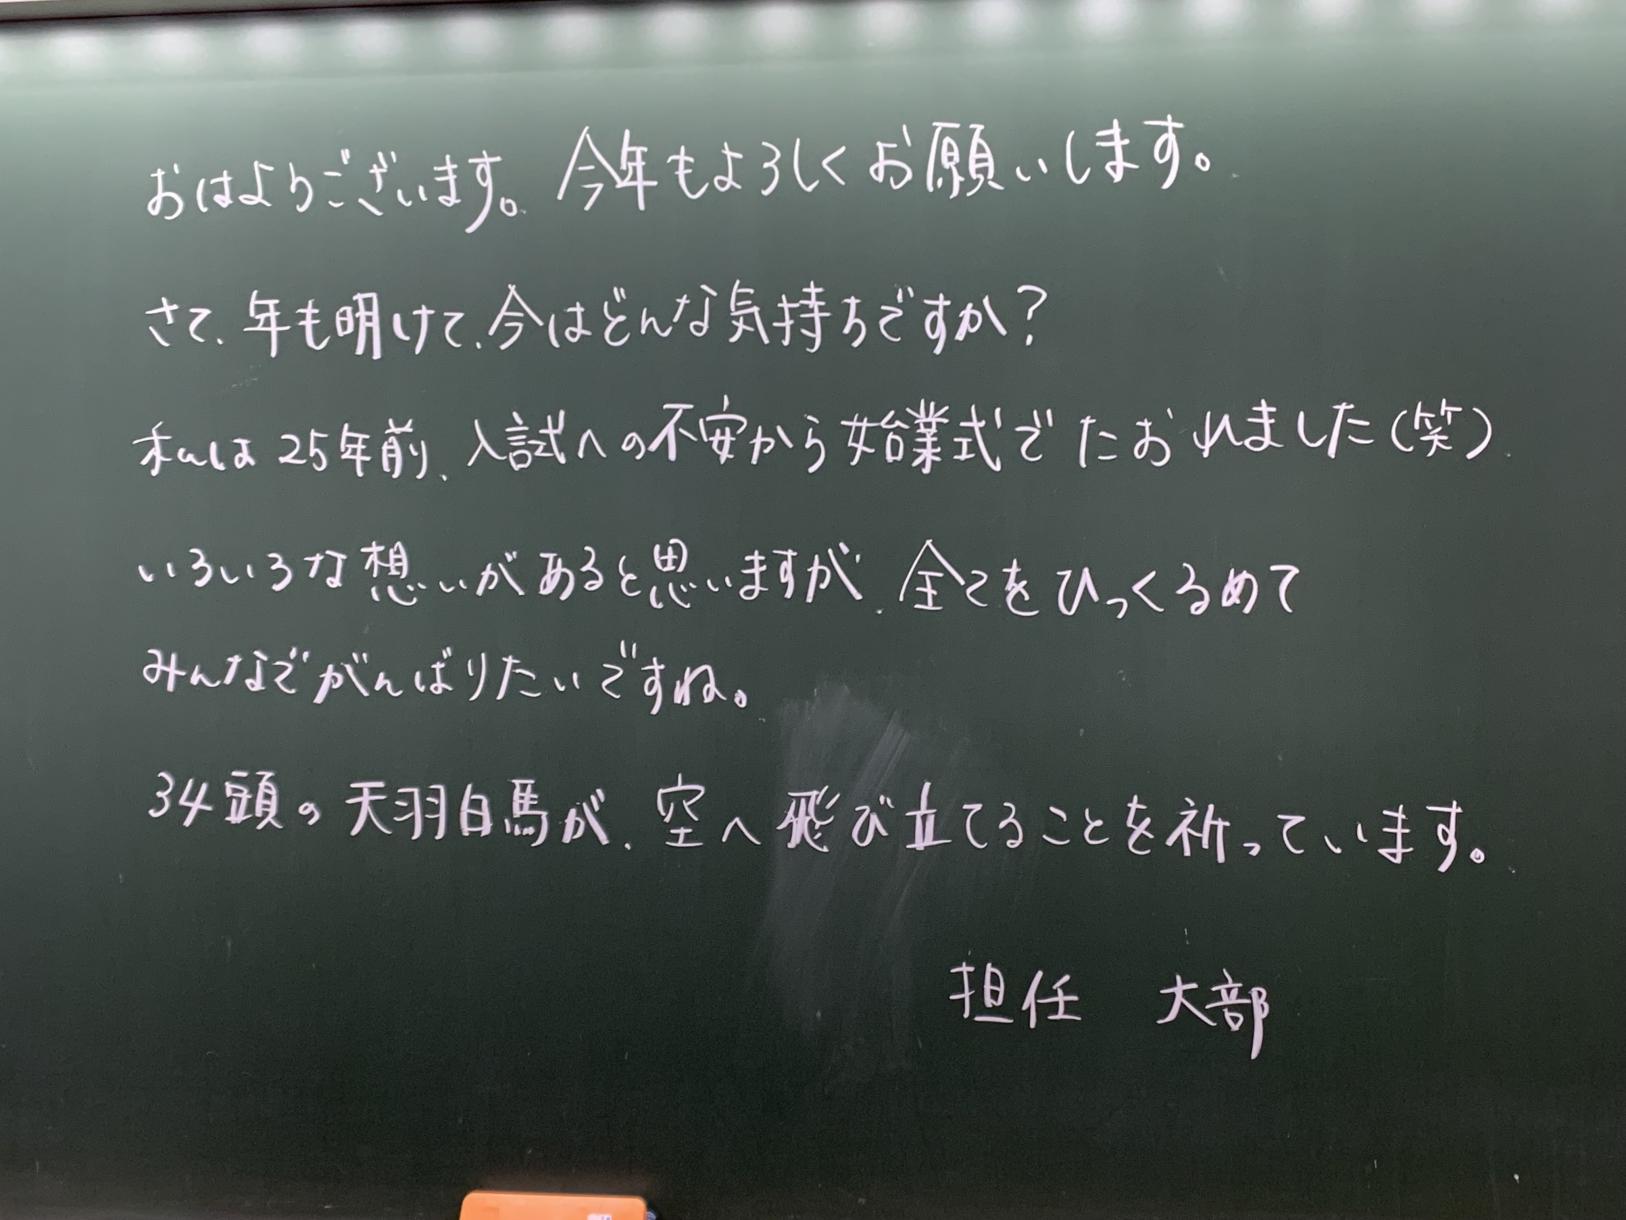 おはようございます。今年もよろしくお願いします。
さて、年も明けて、今はどんな気持ちですか?
私は25年前、入試への不安から始業式でたおれました(笑)
いろいろな想いがあると思いますが、全てをひっくるめて
みんなでがんばりたいですね。
34頭の天羽白馬が、空へ飛び立てることを祈っています。
担任 大部